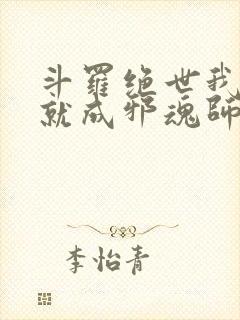 斗羅絶世我
就成邪魂師
李怡青